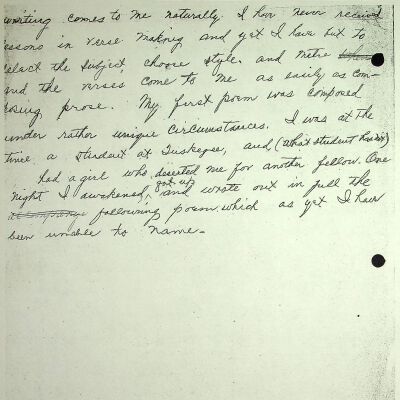 writing comes to me naturally. I have never received
essons in verse making and yet I have but to
elect the subject, choose style, and metre
and the verses come to me as easily as com-
posing prose. My first poem was composed
under rather unique circumstances. I was at the
time a student at Tuskegee, and (what student hasn't)
had a girl who deserted me for another fellow. One
night I awakened, got up, and wrote out in full the
following poem, which as yet I have
been unable to name-